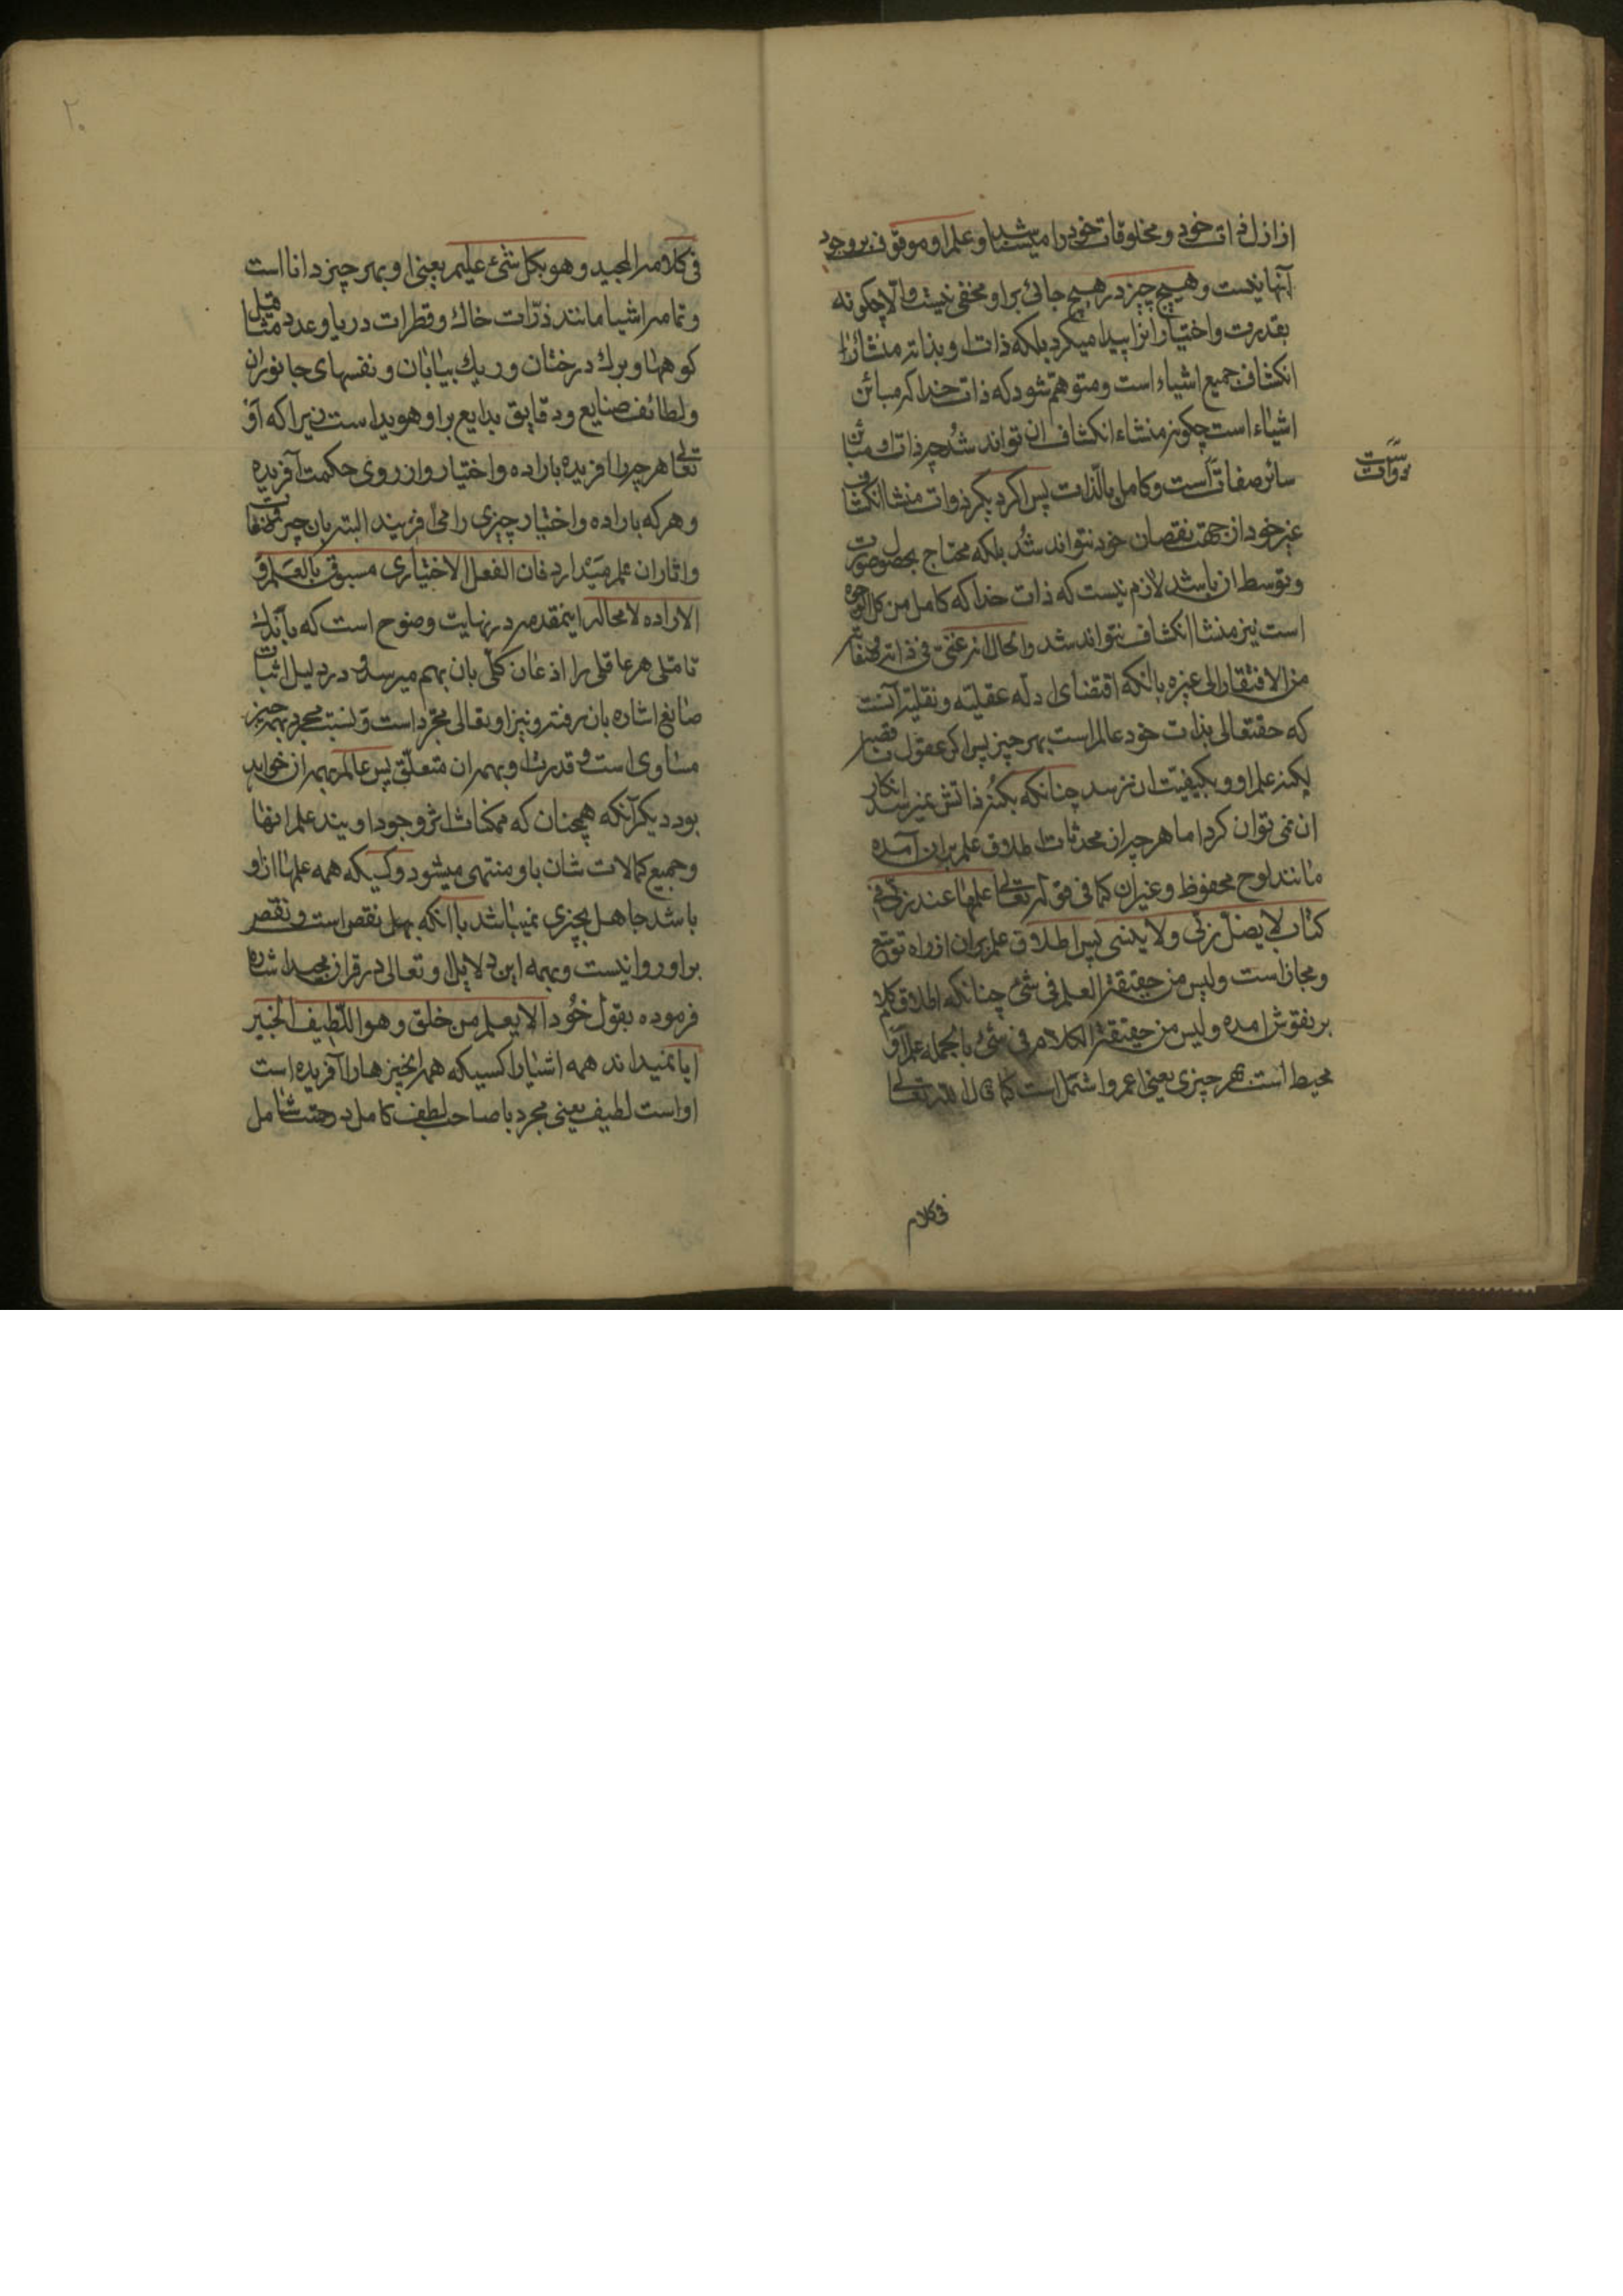 از ازل ذات خود و مخلوقات خود را میشناسد و علم او موقوف بر وجود
آنها نیست و هیچ چیز در هیچ جائی بر او مخفی نیست والا چکونه
بقدرت و اختیار انرا پیدا میکرد بلکه ذات او بذاته منشاء
انکشاف جمیع اشیاء است و متوهم نشود که ذات خدا که مبائن
اشیاء است چکونه منشاء انکشاف ان تواند شد چه ذات او مبائن
سائر ذوات است و کامل بالذات پس اکر دیکر ذوات منشا انکشاف
غیر خود از جهت نقصان خود نتواند شد بلکه محتاج بحصول صورت
و توسط ان باشد لازم نیست که ذات خدا که کامل من کل الوجوه
است نیز منشا انکشاف نتواند شد والحال انه غنی فی ذاته وصفاته
من الافتقار الی غیره باانکه اقتضای ادله عقلیه و نقلیه آنست
که حقتعالی بذات خود عالم است بهر چیز پس اکر عقول
بکنه علم او و بکیفیت ان نرسد چنانکه بکنه ذاتش نمیرسد انکار
ان نمی توان کرد اما هر چه از محدثات اطلاق علم بران آمده
مانند لوح محفوظ و غیر ان کما فی قوله تعالی علمها عند ربی فی
کتاب لا یضل ربی ولا ینسی پس اطلاق علم بران از راه توسع
و مجاز است و لیس من حقیقة العلم فی شئ چنانکه اطلاق کلام
بر نقوش امده و لیس من حقیقة الکلام فی شئ بالجمله علم او
محیط است بهر چیزی یعنی اعم و اشمل است کما قال الله تعالی
فی کلام
فی کلامه المجید وهو بکل شئ علیم یعنی او بهر چیز دانا است
و تمام اشیا مانند ذرات خاك و قطرات دریا و عدد مثاقیل
کوهها و برك درختان و ریك بیابان و نفسهای جانوران
و لطائف صنایع و دقایق بدایع بر او هویدا است زیرا که او
تعالی هر چه را افریده باراده و اختیار و از روی حکمت آفریده
و هر که باراده و اختیار چیزی را می آفریند البته بان چیز و صفات
و اثار ان علم میدارد فان الفعل الاختیاری مسبوق بالعلم و
الاراده لا محاله اینمقدمه در نهایت وضوح است که باندك
تاملی هر عاقلی را اذعان کلی بان بهم میرسد و در دلیل اثبات
صانع اشاره بان رفته و نیز او تعالی مجرد است و نسبت مجرد بهمه چیز
مساوی است و قدرت او بهمه ان متعلق پس عالم بهمه ان خواهد
بود دیکر آنکه همچنان که ممکنات اثر وجود اویند علم انها
و جمیع کمالات شان باو منتهی میشود و کسیکه همه علمها ازو
باشد جاهل بچیزی نمیباشد باانکه جهل نقص است و نقص
بر او روا نیست و بهمه این دلایل او تعالی در قران مجید اشاره
فرموده بقول خود الا یعلم من خلق وهو اللطیف الخبیر
ایا نمیداند همه اشیا را کسیکه همه انچیزها را آفریده است
او است لطیف یعنی مجرد یا صاحب لطف کامل و رحمت شامل